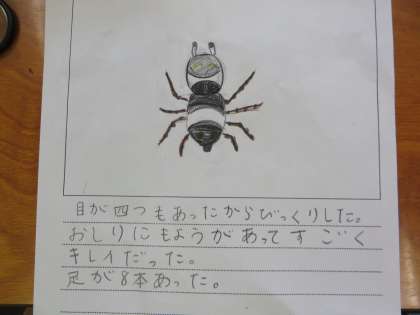 目が四つもあったからびっくりした。
おしりにもようがあってすごく
キレイだった。
足が8本あった。